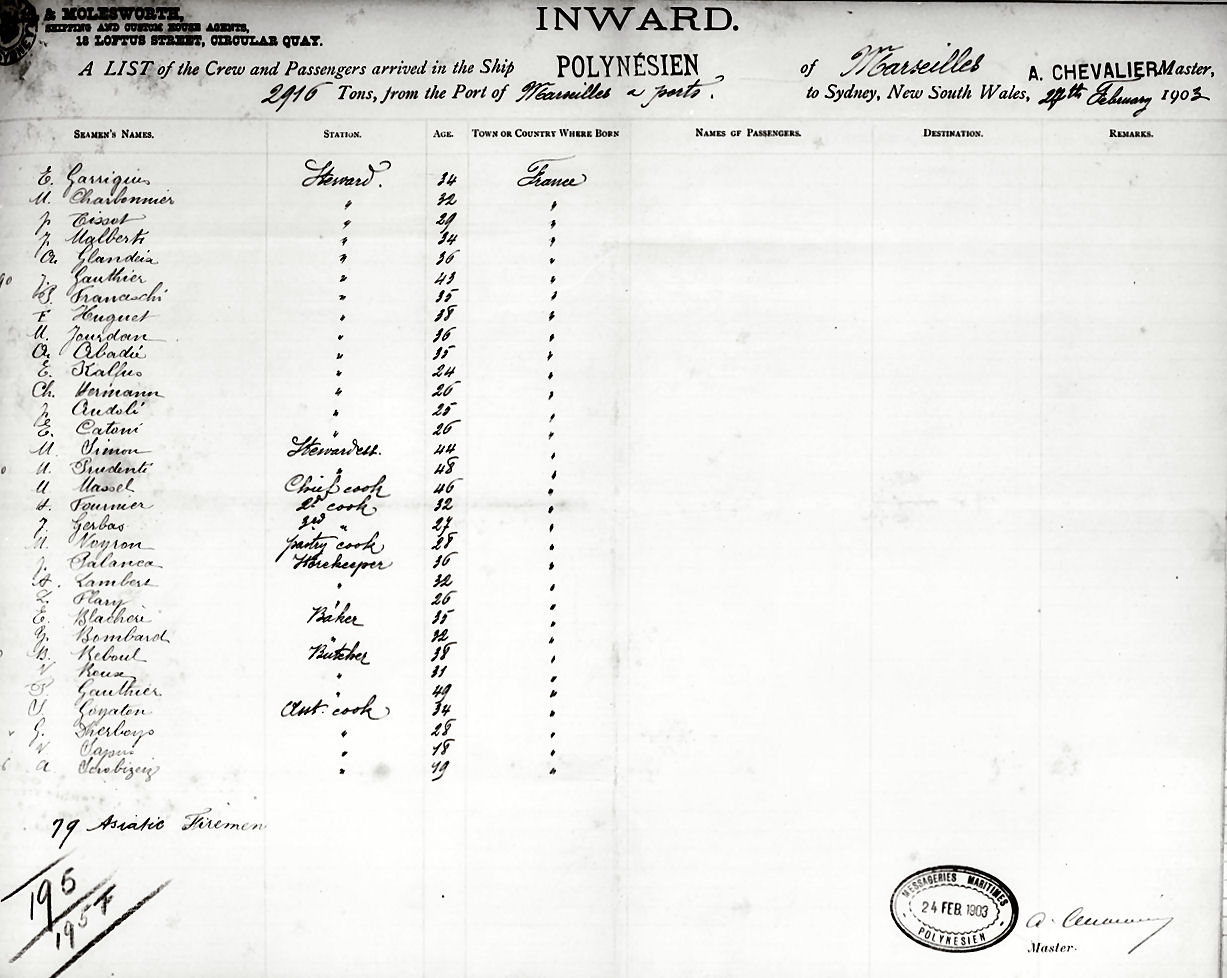 & MOLESWORTH,
SHIPPING AND CUSTOM HOUSE AGENTS,
18 LOFTUS STREET, CIRCULAR QUAY.
INWARD.
A LIST of the Crew and Passengers arrived in the Ship POLYNÉSIEN of Marseilles A. CHEVALIER Master,
2916 Tons, from the Port of Marseilles a ports. to Sydney, New South Wales, February 1903
SEAMEN'S NAMES. STATION. AGE. TOWN OR COUNTRY WHERE BORN NAMES OF PASSENGERS. DESTINATION. REMARKS.
E. Garrigues Steward. 34 France
M. Charbonnier " 32 "
J. Eissot " 29 "
J. Malberti " 34 "
A. Glandeia " 36 "
J. Gauthier " 43 "
B. Franceschi " 35 "
F Huguet " 38 "
M. Jourdan " 36 "
A. Abadie " 35 "
E. Kalfus " 24 "
Ch. Hermann " 26 "
J. Audoli " 25 "
E. Catoni " 26 "
M. Simon Stewardess. 44 "
M. Prudenti " 48 "
M Massel Chief cook 46 "
A. Fournier 2d cook 32 "
J. Gerbas 3rd " 27 "
M. Neyron pastry cook 28 "
J. Palanca Storekeeper 36 "
A. Lambert " 32 "
L. Flary " 26 "
E. Blachere Baker 35 "
G. Bombard " 32 "
B. Reboul Butcher 38 "
V Roux " 31 "
P. Gauthier " 49 "
J. Goyaton Asst. cook 34 "
G. Dherboys " 28 "
V Sapus " 18 "
A " 19 "
79 Asiatic Firemen
195
195
MESSAGERIES MARITIMES
24 FEB. 1903
POLYNESIEN
Master.